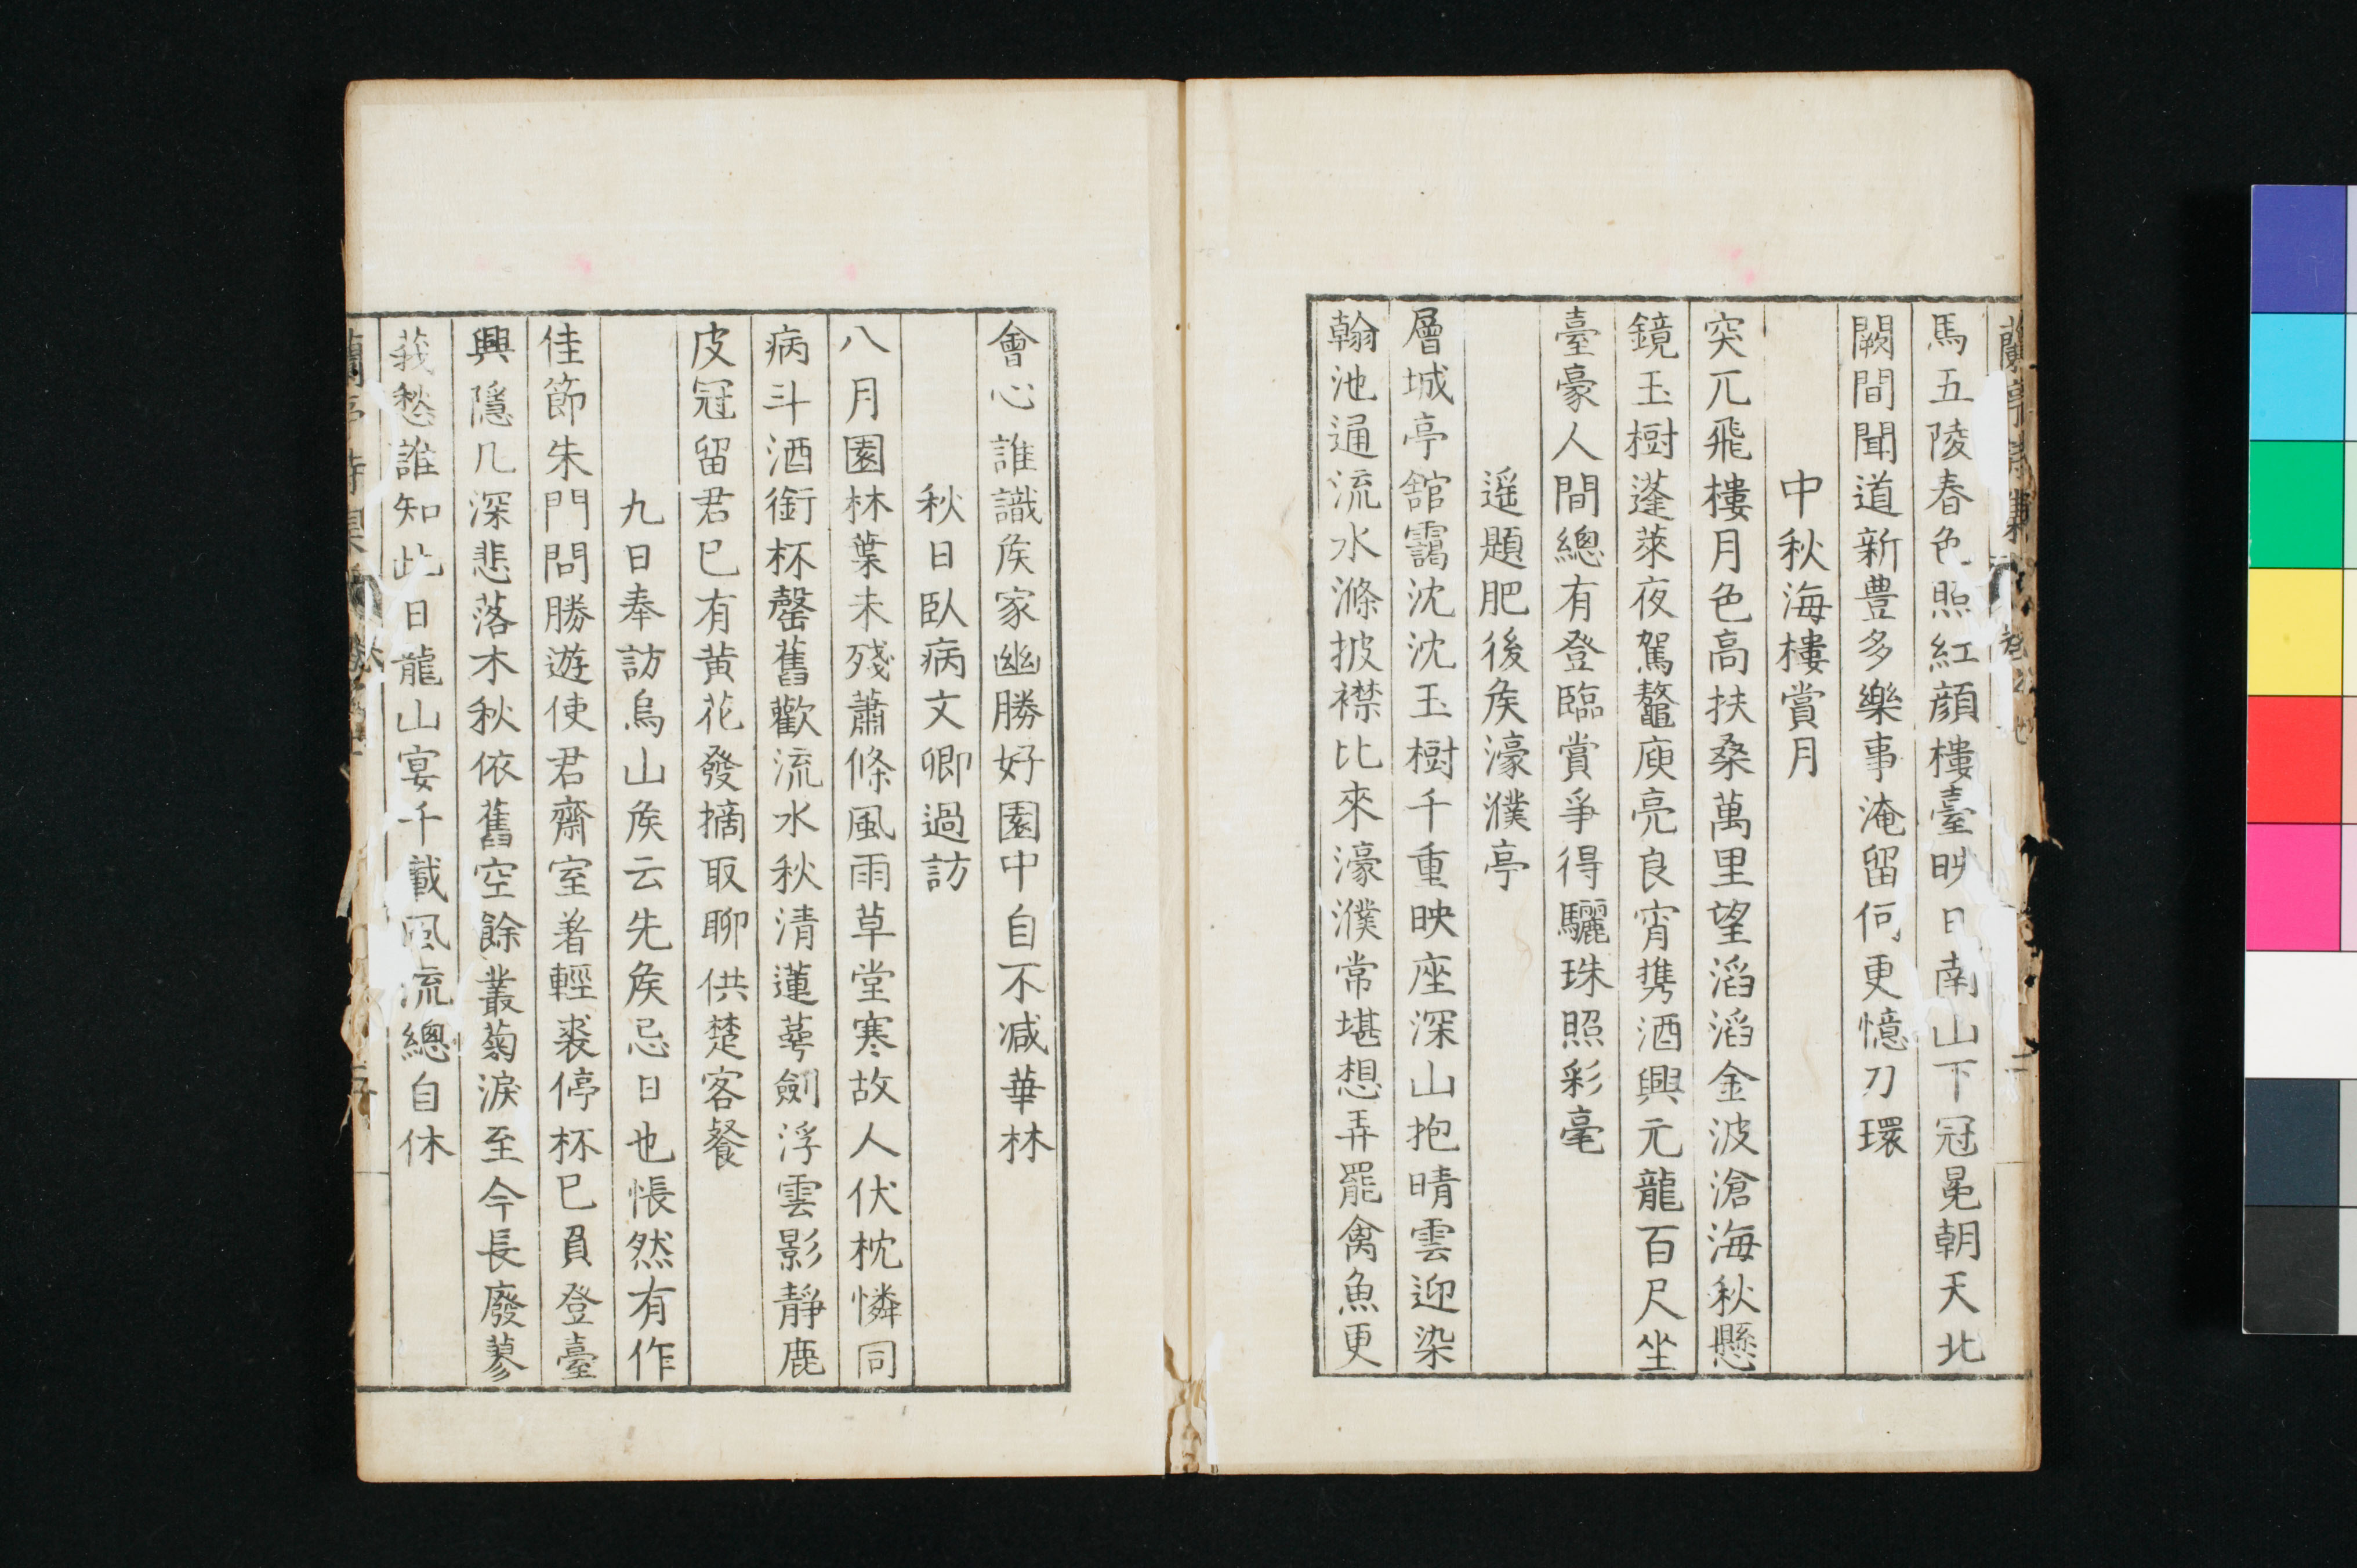 馬五陵春色照紅顔樓臺映日南山下冠冕朝天北
闕間聞道新豊多樂事淹留何更憶刀環
中秋海樓賞月
突兀飛樓月色高扶桑萬里望滔滔金波滄海秋懸
鏡玉樹蓬萊夜駕鼇庾亮良宵携酒興元龍百尺坐
臺豪人間總有登臨賞爭得驪珠照彩毫
遥題肥後矦濠濮亭
層城亭舘靄沈沈玉樹千重映座深山抱晴雲迎染
翰池通流水滌披襟比來濠濮常堪想弄罷禽魚更
會心誰識矦家幽勝好園中自不减華林
秋日臥病文卿過訪
八月園林葉未殘蕭條風雨草堂寒故人伏枕憐同
病斗酒銜杯罄舊歡流水秋清蓮萼劍浮雲影靜鹿
皮冠留君已有黄花發摘取聊供楚客餐
九日奉訪烏山矦云先矦忌日也悵然有作
佳節朱門問勝遊使君齋室著輕裘停杯已負登臺
興隱几深悲落木秋依舊空餘叢菊淚至今長廢蓼
莪愁誰知此日龍山宴千載風流總自休